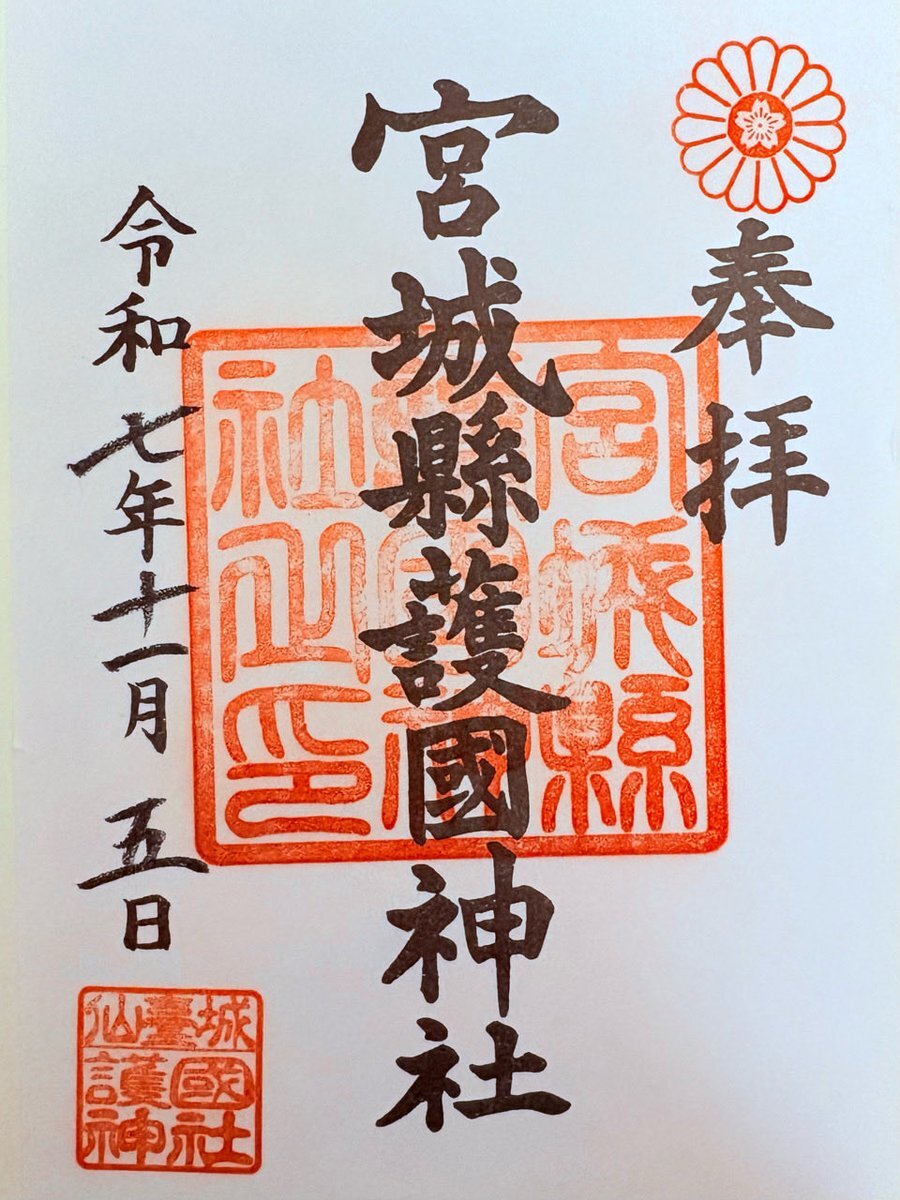 奉拝
宮城縣護國神社
宮城縣
護國神
社之印
令和七年十一月五日
仙臺城
護國
神社